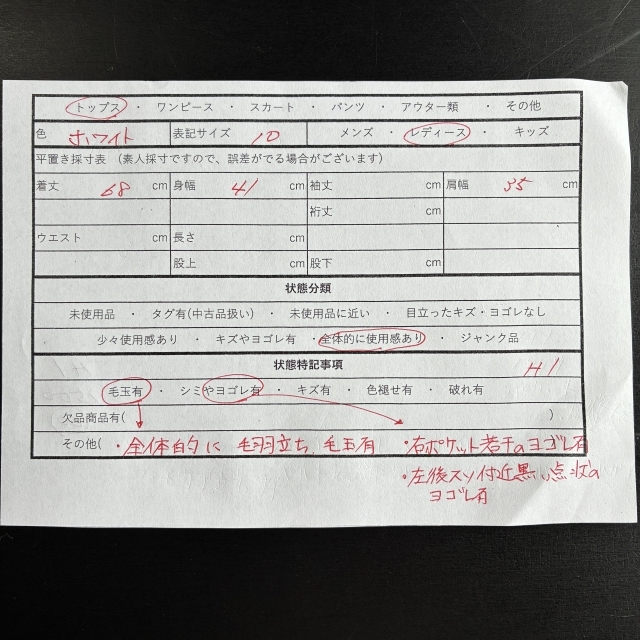 トップス ・ ワンピース ・ スカート ・ パンツ ・ アウター類 ・ その他
色 ホワイト 表記サイズ 10 メンズ ・ レディース ・ キッズ
平置き採寸表 （素人採寸ですので、誤差がでる場合がございます）
着丈 68 cm 身幅 41 cm 袖丈 cm 肩幅 35 cm
裄丈 cm
ウエスト cm 長さ cm
股上 cm 股下 cm
状態分類
未使用品 ・ タグ有(中古品扱い) ・ 未使用品に近い ・ 目立ったキズ・ヨゴレなし
少々使用感あり ・ キズやヨゴレ有 ・ 全体的に使用感あり ・ ジャンク品
状態特記事項 H1
毛玉有 ・ シミやヨゴレ有 ・ キズ有 ・ 色褪せ有 ・ 破れ有
欠品商品有( )
その他( ・全体的に毛羽立ち、毛玉有 ・右ポケット若干のヨゴレ有
・左後スソ付近黒い点状の
ヨゴレ有